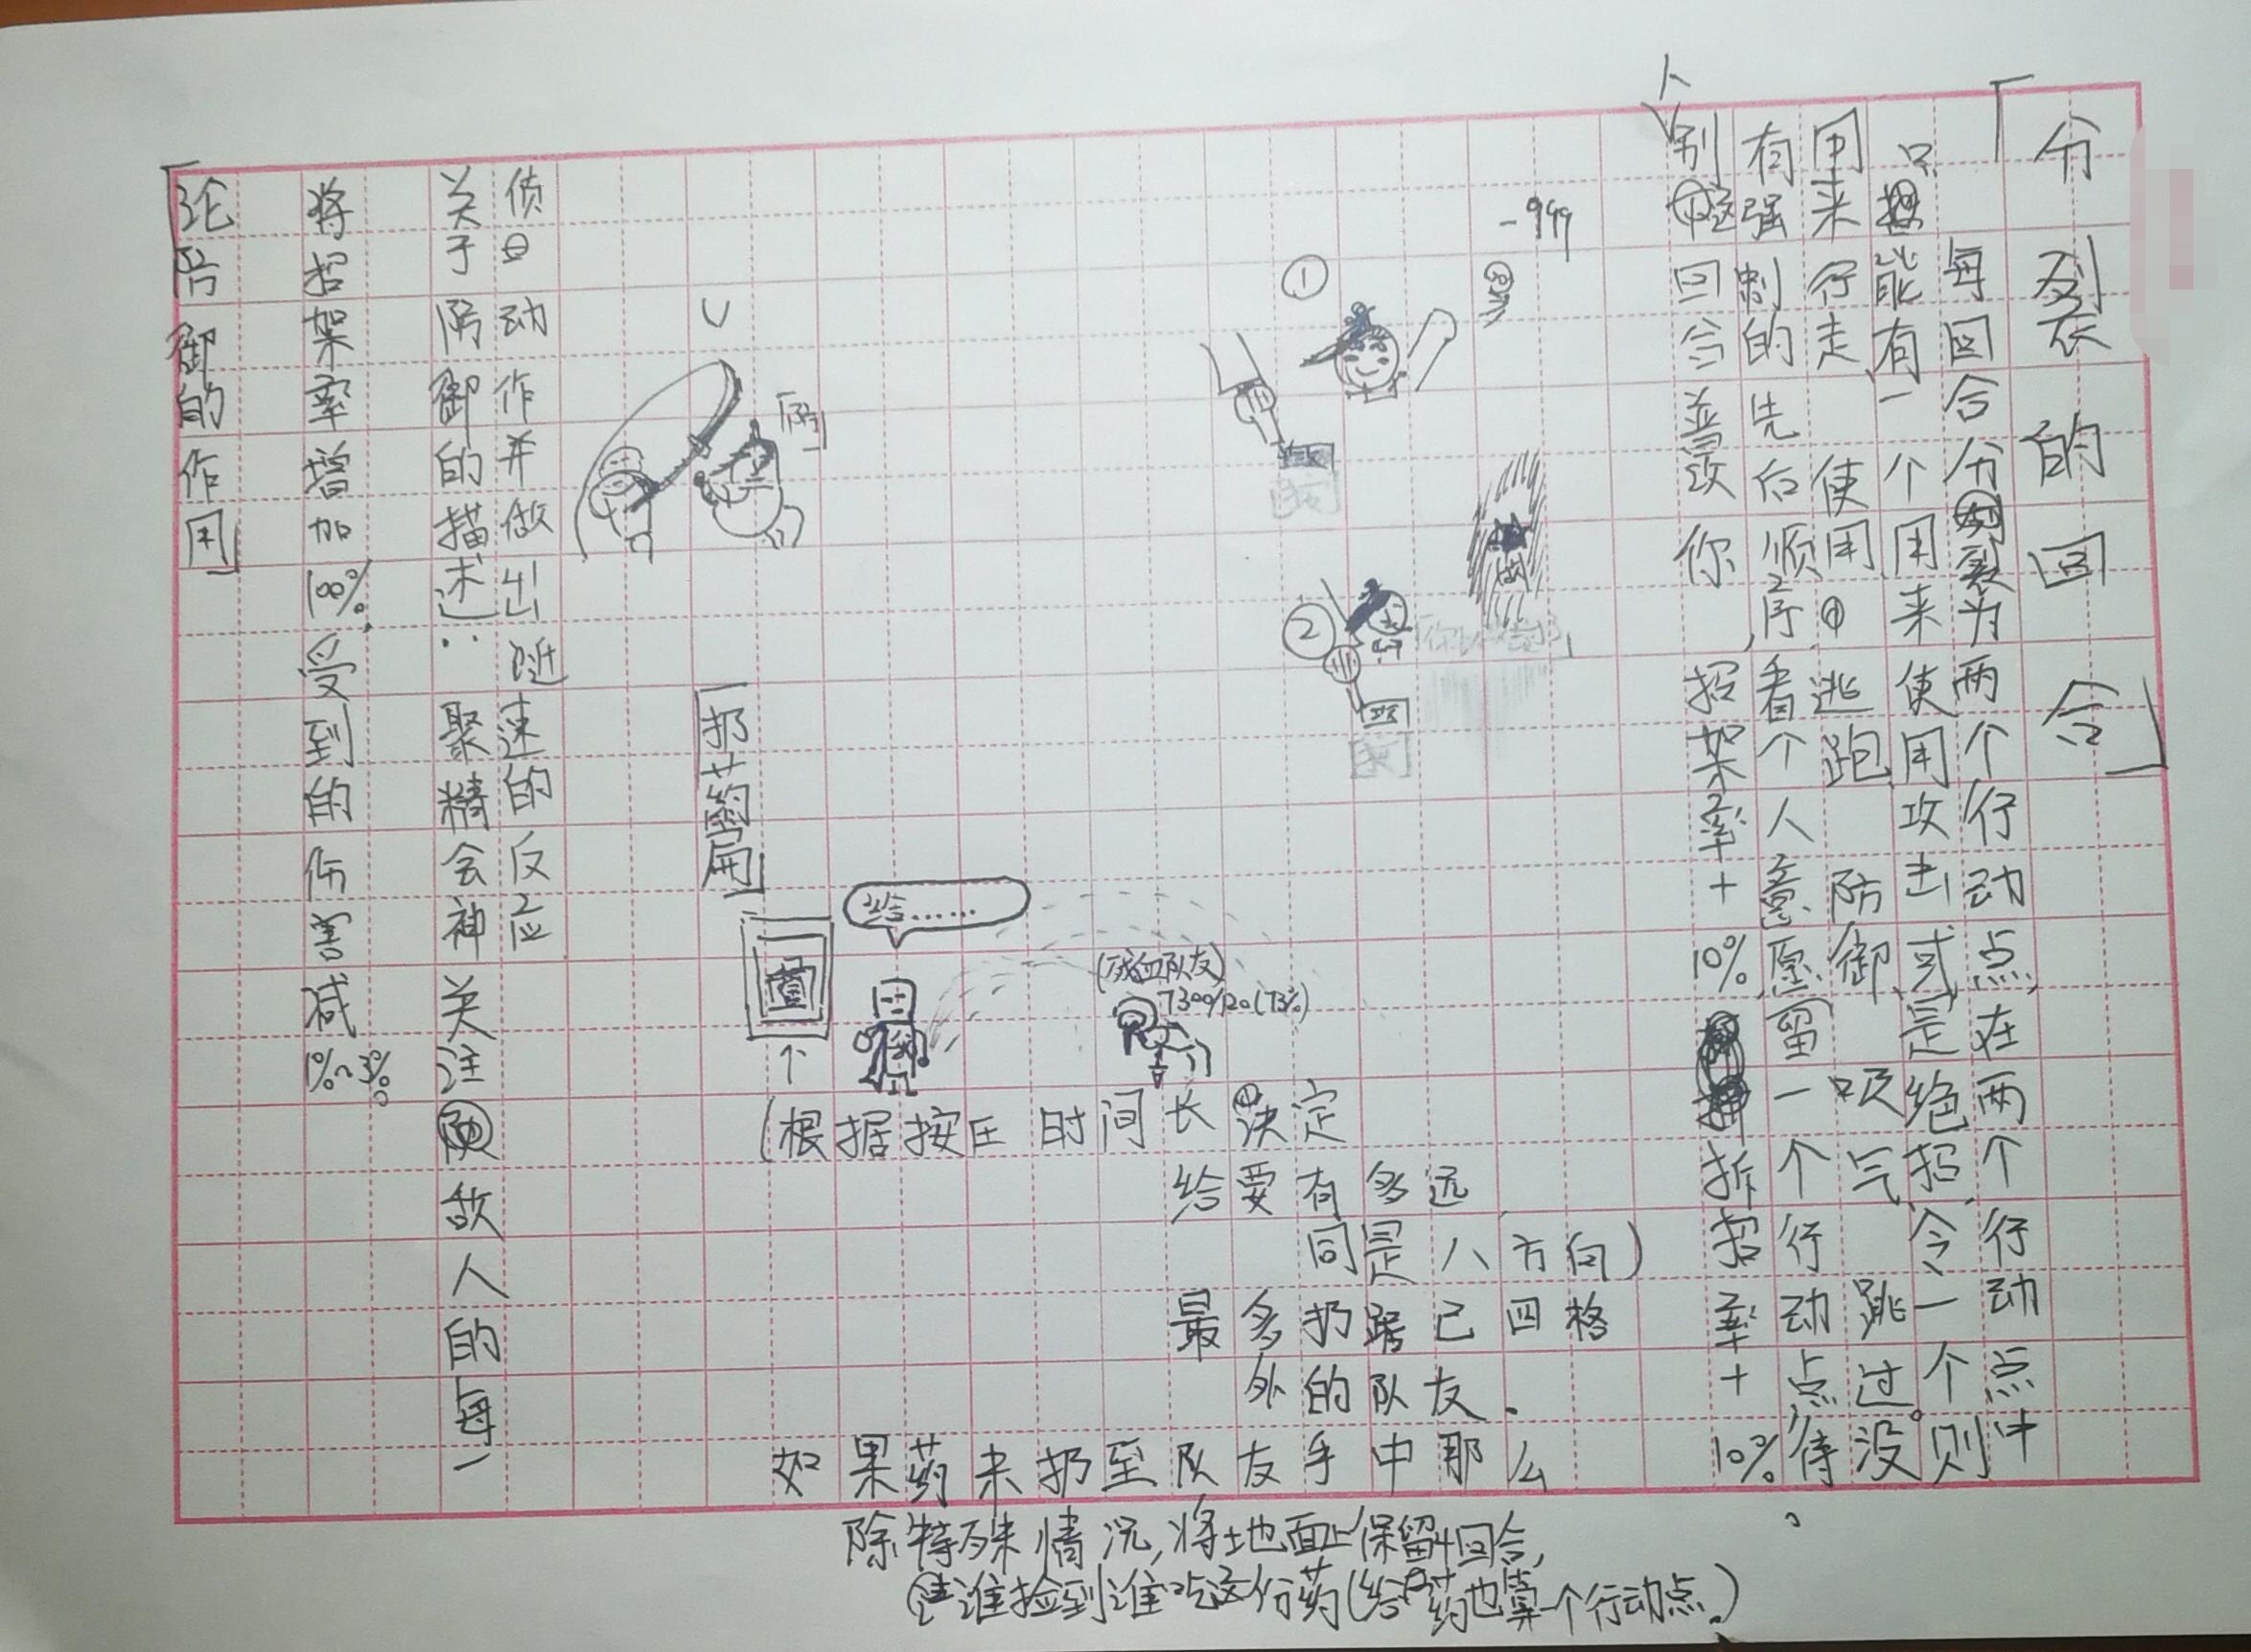 「分裂的回合」
每回合分裂为两个行动点,在两个行动点中
只能有一个用来使用攻击或是绝招,令一个则
用来行走、使用、逃跑、防御、吸气、跳过。没
有强制的先后顺序,看个人意愿,留一个行动点待
别回合攻你招架率+10%,拆招率+10%。
-999
①
②
「防」
「扔药扁」
给……
(残血队友)
7300/120(73%)
(根据按压时间长决定
给要有多远
同是八方向)
最多扔距己四格
外的队友.
如果药未扔至队友手中那么
除特殊情况,将地面上保留十回合,
谁捡到谁吃这份药(给药也算一个行动点.)
「论防御的作用」
将招架率增加100%,受到的伤害减10%~30%。
关于防御的描述:聚精会神关注敌人的每一
动作并做出迅速的反应